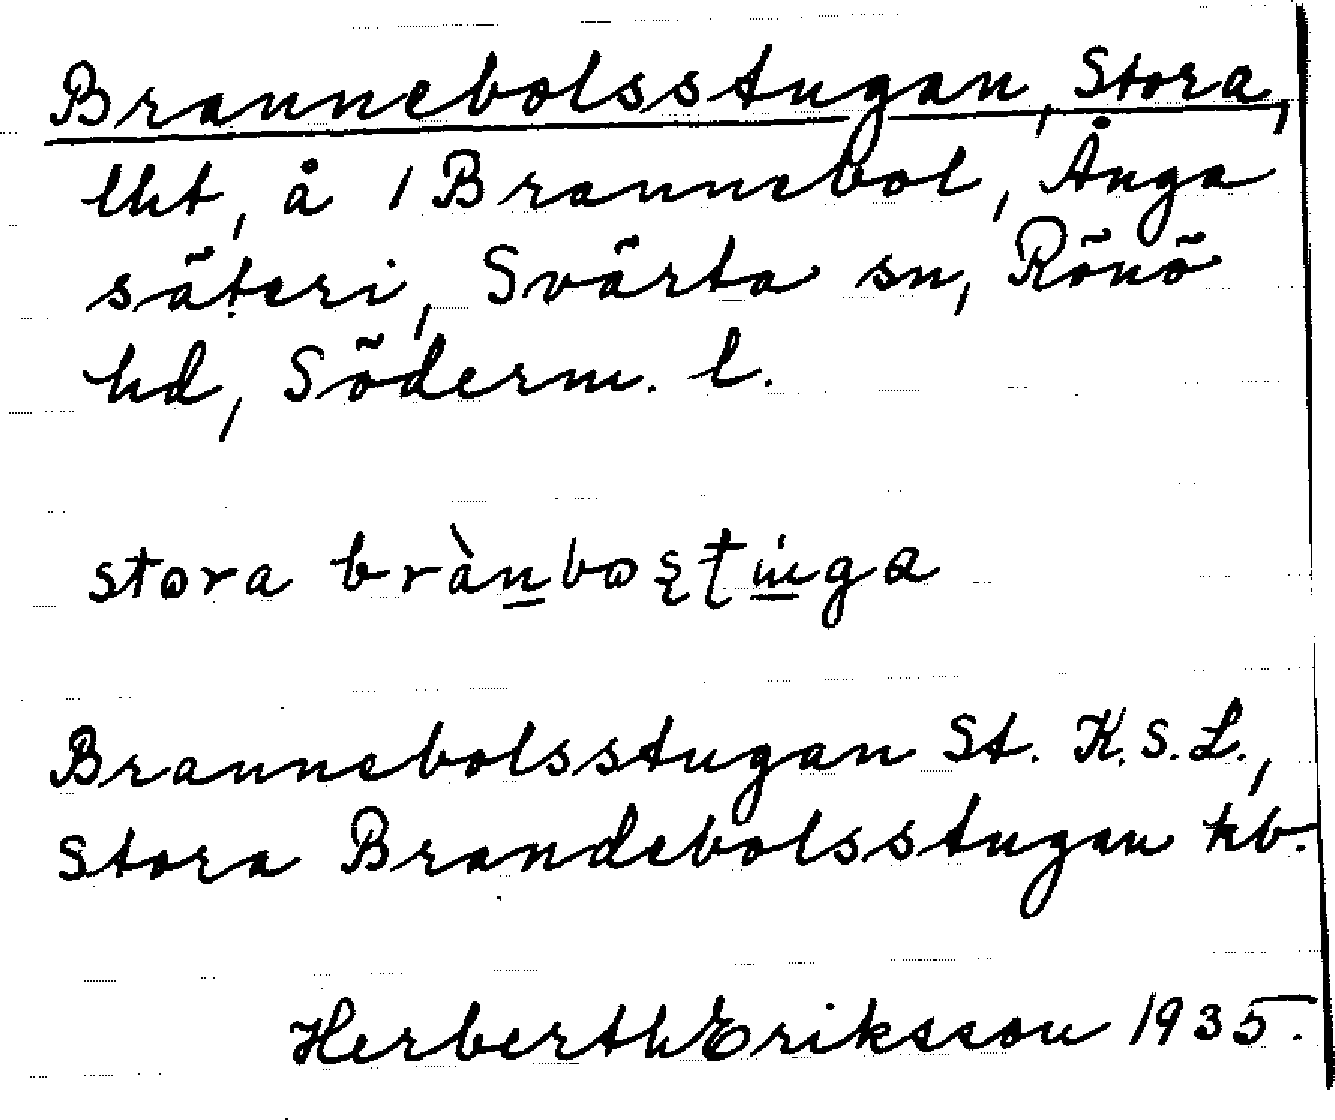 Brannebolsstugan, Stora,
lht, å 1 Brannebol, Ånga
säteri, Svärta sn, Rönö
hd, Söderm. l.
stora bra̱nboʂʈɯga
Brannebolsstugan St. K.S.L.,
Stora Brandebolsstugan kb.
Herbert Eriksson 1935.